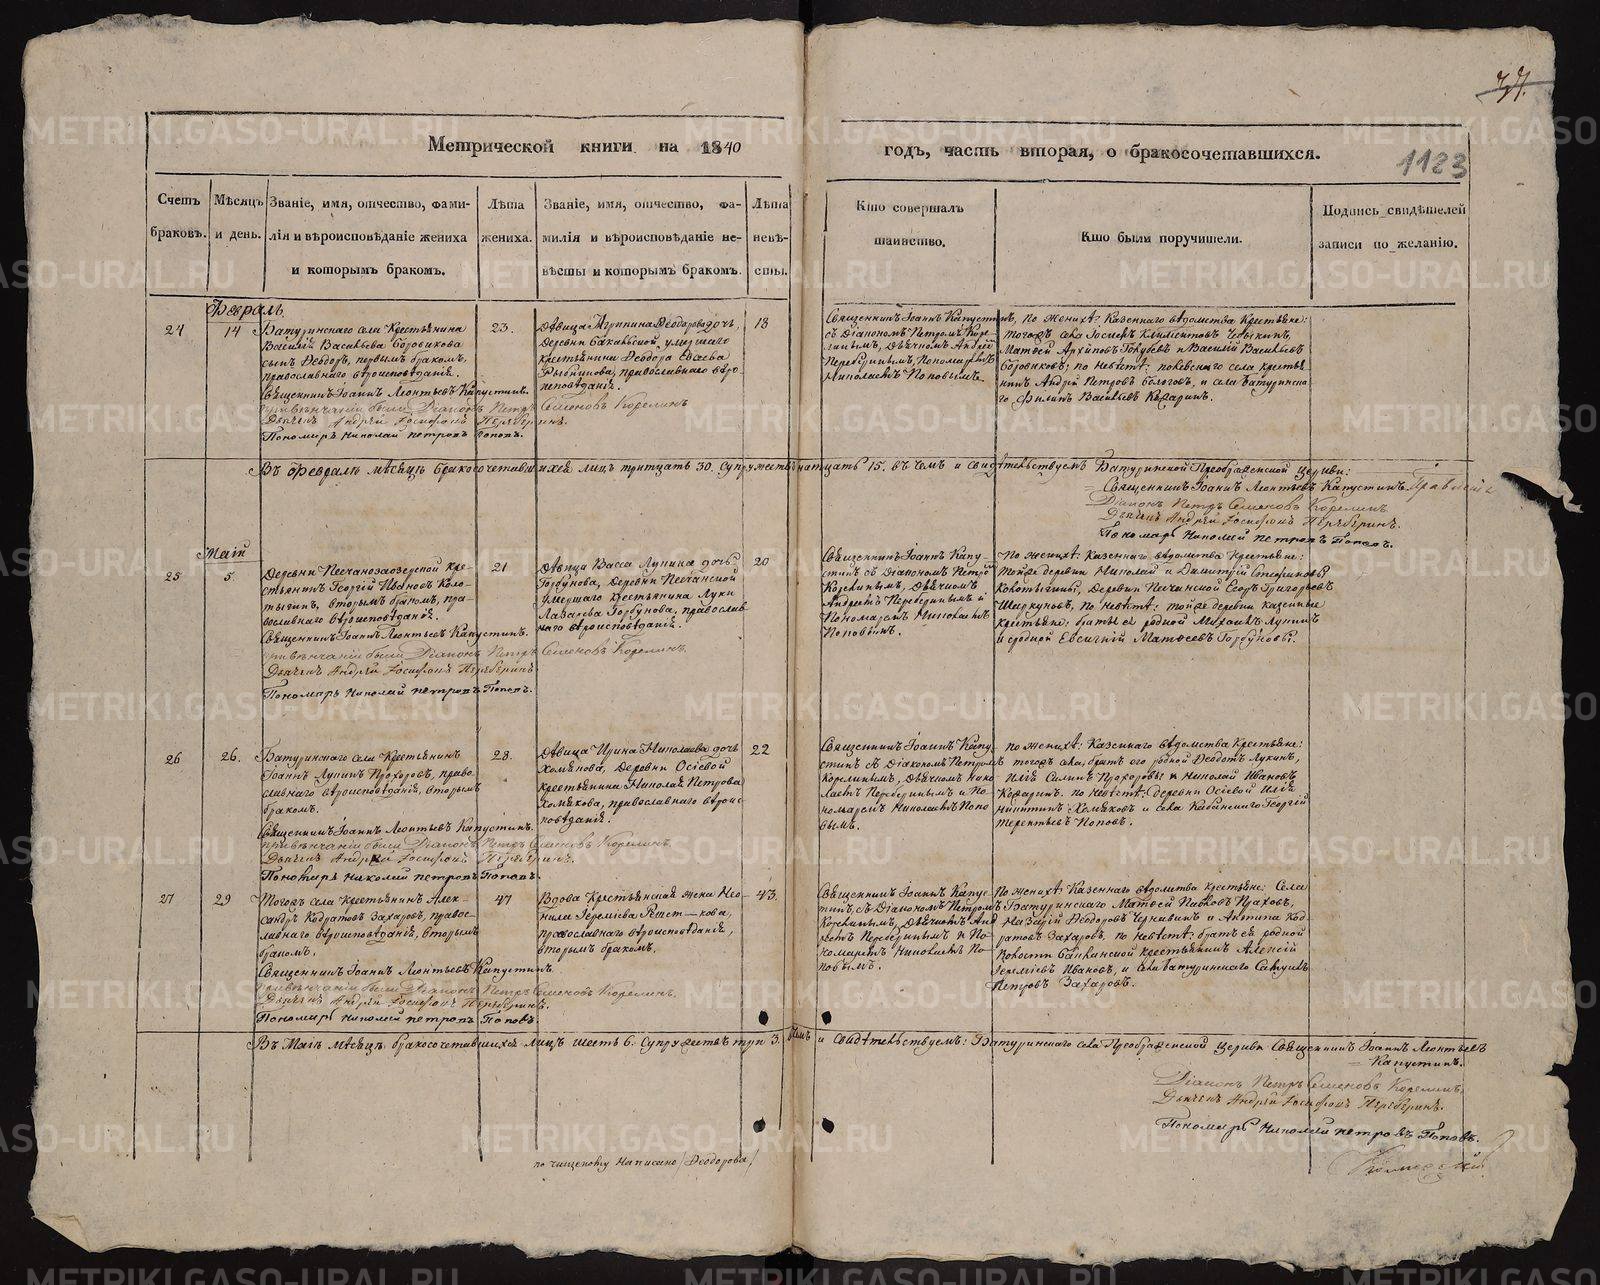 Метрической книги на 1840
годъ, часть вторая, о бракосочетавшихся.
1123
Счетъ браковъ.
Мѣсяцъ и день.
Званіе, имя, отчество, фами-
лія и вѣроисповѣданіе жениха
и которымъ бракомъ.
Лѣта жениха.
Званіе, имя, отчество, фа-
милія и вѣроисповѣданіе не-
вѣсты и которымъ бракомъ.
Лѣта невѣ-
сты.
Кто совершалъ
таинство.
Кто были поручители.
Подпись свидѣтелей
записи по желанію.
Февраль.
24
14
Батуринскаго села Крестьянина
Василій Васильева Боровикова
сынъ Ѳеодоръ, первымъ бракомъ,
православнаго вѣроисповѣданія.
Священникъ Іоаннъ Леонтьевъ Капустинъ.
привѣнчаніи были Діаконъ Петръ Семеновъ Корелинъ
Дьячекъ Андрей Іосифовъ Переберинъ.
Пономарь Николай Петровъ Поповъ.
23.
Дѣвица Агрипина Ѳеодорова дочь,
Деревни умершаго
крестьянина Ѳеодора
православнаго вѣро-
исповѣданія.
18
Священникъ Іоаннъ Капустинъ,
съ Діакономъ Петромъ Коре-
линымъ, Дьячкомъ Андреемъ
Переберинымъ, Пономаремъ
Николаемъ Поповымъ
по женихѣ: Казеннаго вѣдомства Крестьяне:
тогожъ села
Матвей Архиповъ Голубевъ и Василій Васильевъ
Боровиковъ; по невѣстѣ: села крестья-
нинъ Андрей Петровъ и села Батуринска-
го Филипъ Васильевъ
Въ Февралѣ мѣсяцѣ бракосочетавшихся лицъ тритцать 30. Супружествъ пятнатцать 15. въ чемъ и свидѣтельствуемъ Батуринской Преображенской церкви:
Священникъ Іоаннъ Леонтьевъ Капустинъ
Діаконъ Петръ Семеновъ Корелинъ
Дьячекъ Андрей Іосифовъ Переберинъ.
Пономарь Николай Петровъ Поповъ.
Маій
25
5.
Деревни Песчаноозерской кре-
стьянинъ Георгій Ивановъ Коко-
тыгинъ, вторымъ бракомъ, пра-
вославнаго вѣроисповѣданія.
Священникъ Іоаннъ Леонтьевъ Капустинъ.
привѣнчаніи были Діаконъ Петръ Семеновъ Корелинъ.
Дьячекъ Андрей Іосифовъ Переберинъ
Пономарь Николай Петровъ Поповъ.
21
Дѣвица Васса Лукина дочь
Горбунова, Деревни Песчанской
умершаго крестьянина Луки
Лазарева Горбунова, православ-
наго вѣроисповѣданія.
20
Священникъ Іоаннъ Капу-
стинъ съ Діакономъ Петромъ
Корелинымъ, Дьячкомъ
Андреемъ Переберинымъ и
Пономаремъ Николаемъ
Поповымъ.
По женихѣ: Казеннаго вѣдомства Крестьяне:
тойже деревни Николай и Димитрій Стефановы
Кокотыгины, Деревни Песчанской Егоръ Григорьевъ
Шаркуновъ, по невѣстѣ: тойже деревни казенные
крестьяне: братъ ея родной Михаилъ Лукинъ
и сродной Евсигній Матвеевъ Горбуновы.
26
26.
Батуринскаго села Крестьянинъ
Іоаннъ Лукинъ Прохоровъ, право-
славнаго вѣроисповѣданія, вторымъ
бракомъ.
Священникъ Іоаннъ Леонтьевъ Капустинъ.
привѣнчаніи были Діаконъ Петръ Семеновъ Корелинъ,
Дьячекъ Андрей Іосифовъ Переберинъ.
Пономарь Николай Петровъ Поповъ.
28.
Дѣвица Ирина Николаева дочь
Хомякова, Деревни Осіевой
крестьянина Николая Петрова
Хомякова, православнаго вѣроис-
повѣданія.
22
Священникъ Іоаннъ Капу-
стинъ съ Діакономъ Петромъ
Корелинымъ, Дьячкомъ
Переберинымъ и По-
номаремъ Николаемъ Попо-
вымъ.
по женихѣ: Казеннаго вѣдомства Крестьяне:
тогожъ села, братъ его родной Ѳеодотъ Лукинъ,
Илія Силинъ Прохоровы и Николай Ивановъ
по невѣстѣ: деревни Осіевой Илія
Никитинъ Хомяковъ и села Кабанскаго Георгій
Терентьевъ Поповъ.
27
29
Тогожъ села крестьянинъ Алек-
сандръ Кодратовъ Захаровъ, правос-
лавнаго вѣроисповѣданія, вторымъ
бракомъ.
Священникъ Іоаннъ Леонтьевъ Капустинъ.
привѣнчаніи были Діаконъ Петръ Семеновъ Корелинъ,
Дьячекъ Андрей Іосифовъ Переберинъ.
Пономарь Николай Петровъ Поповъ.
47
Вдова Крестьянская жена Нео-
нила Іереміева
православнаго вѣроисповѣданія,
вторымъ бракомъ.
43.
Священникъ Іоаннъ Капус-
тинъ, съ Діакономъ Петромъ
Корелинымъ, Дьячкомъ Анд-
реемъ Переберинымъ и По-
номаремъ Николаемъ По-
повымъ.
По женихѣ: Казеннаго вѣдомства крестьяне: Села
Батуринскаго Матвей Павловъ
Ѳеодоровъ Чернавинъ и Антипа Код-
ратовъ Захаровъ, по невѣстѣ: братъ ея родной
волости крестьянинъ Алексій
Іереміевъ Ивановъ, и села Батуринскаго
Петровъ Захаровъ.
Въ Маіѣ мѣсяцѣ бракосочетавшихся лицъ шесть 6. Супружествъ три 3. въ чемъ и свидѣтельствуемъ: Батуринскаго села Преображенской церкви Священникъ Іоаннъ Леонтьевъ
Капустинъ.
Діаконъ Петръ Семеновъ Корелинъ,
Дьячекъ Андрей Іосифовъ Переберинъ.
Пономарь Николай Петровъ Поповъ.
по чищеному написано /Ѳеодорова/
METRIKI.GASO-URAL.RU